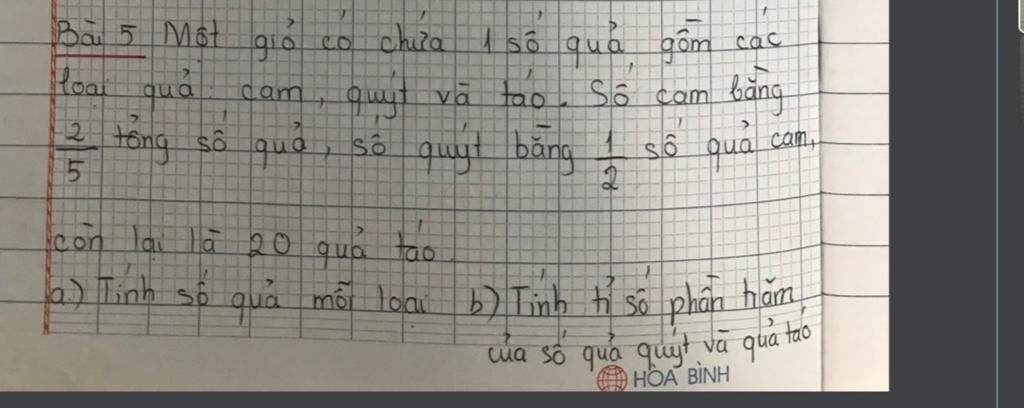 Bài 5 Một giỏ có chứa 1 số quả gồm các
loại quả: cam, quýt và táo. Số cam bằng
2/5 tổng số quả, số quýt bằng 1/2 số quả cam,
còn lại là 20 quả táo
a) Tính số quả mỗi loại b) Tính tỉ số phần trăm
của số quả quýt và quả táo
HÒA BÌNH